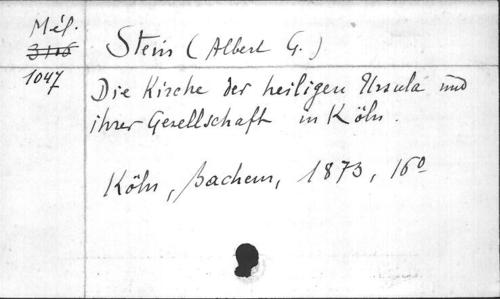 Mél.
3116
1047
Stein (Albert G.)
Die Kirche der heiligen Ursula und
ihrer Gesellschaft in Köln.
Köln, Bachem, 1873, 16°